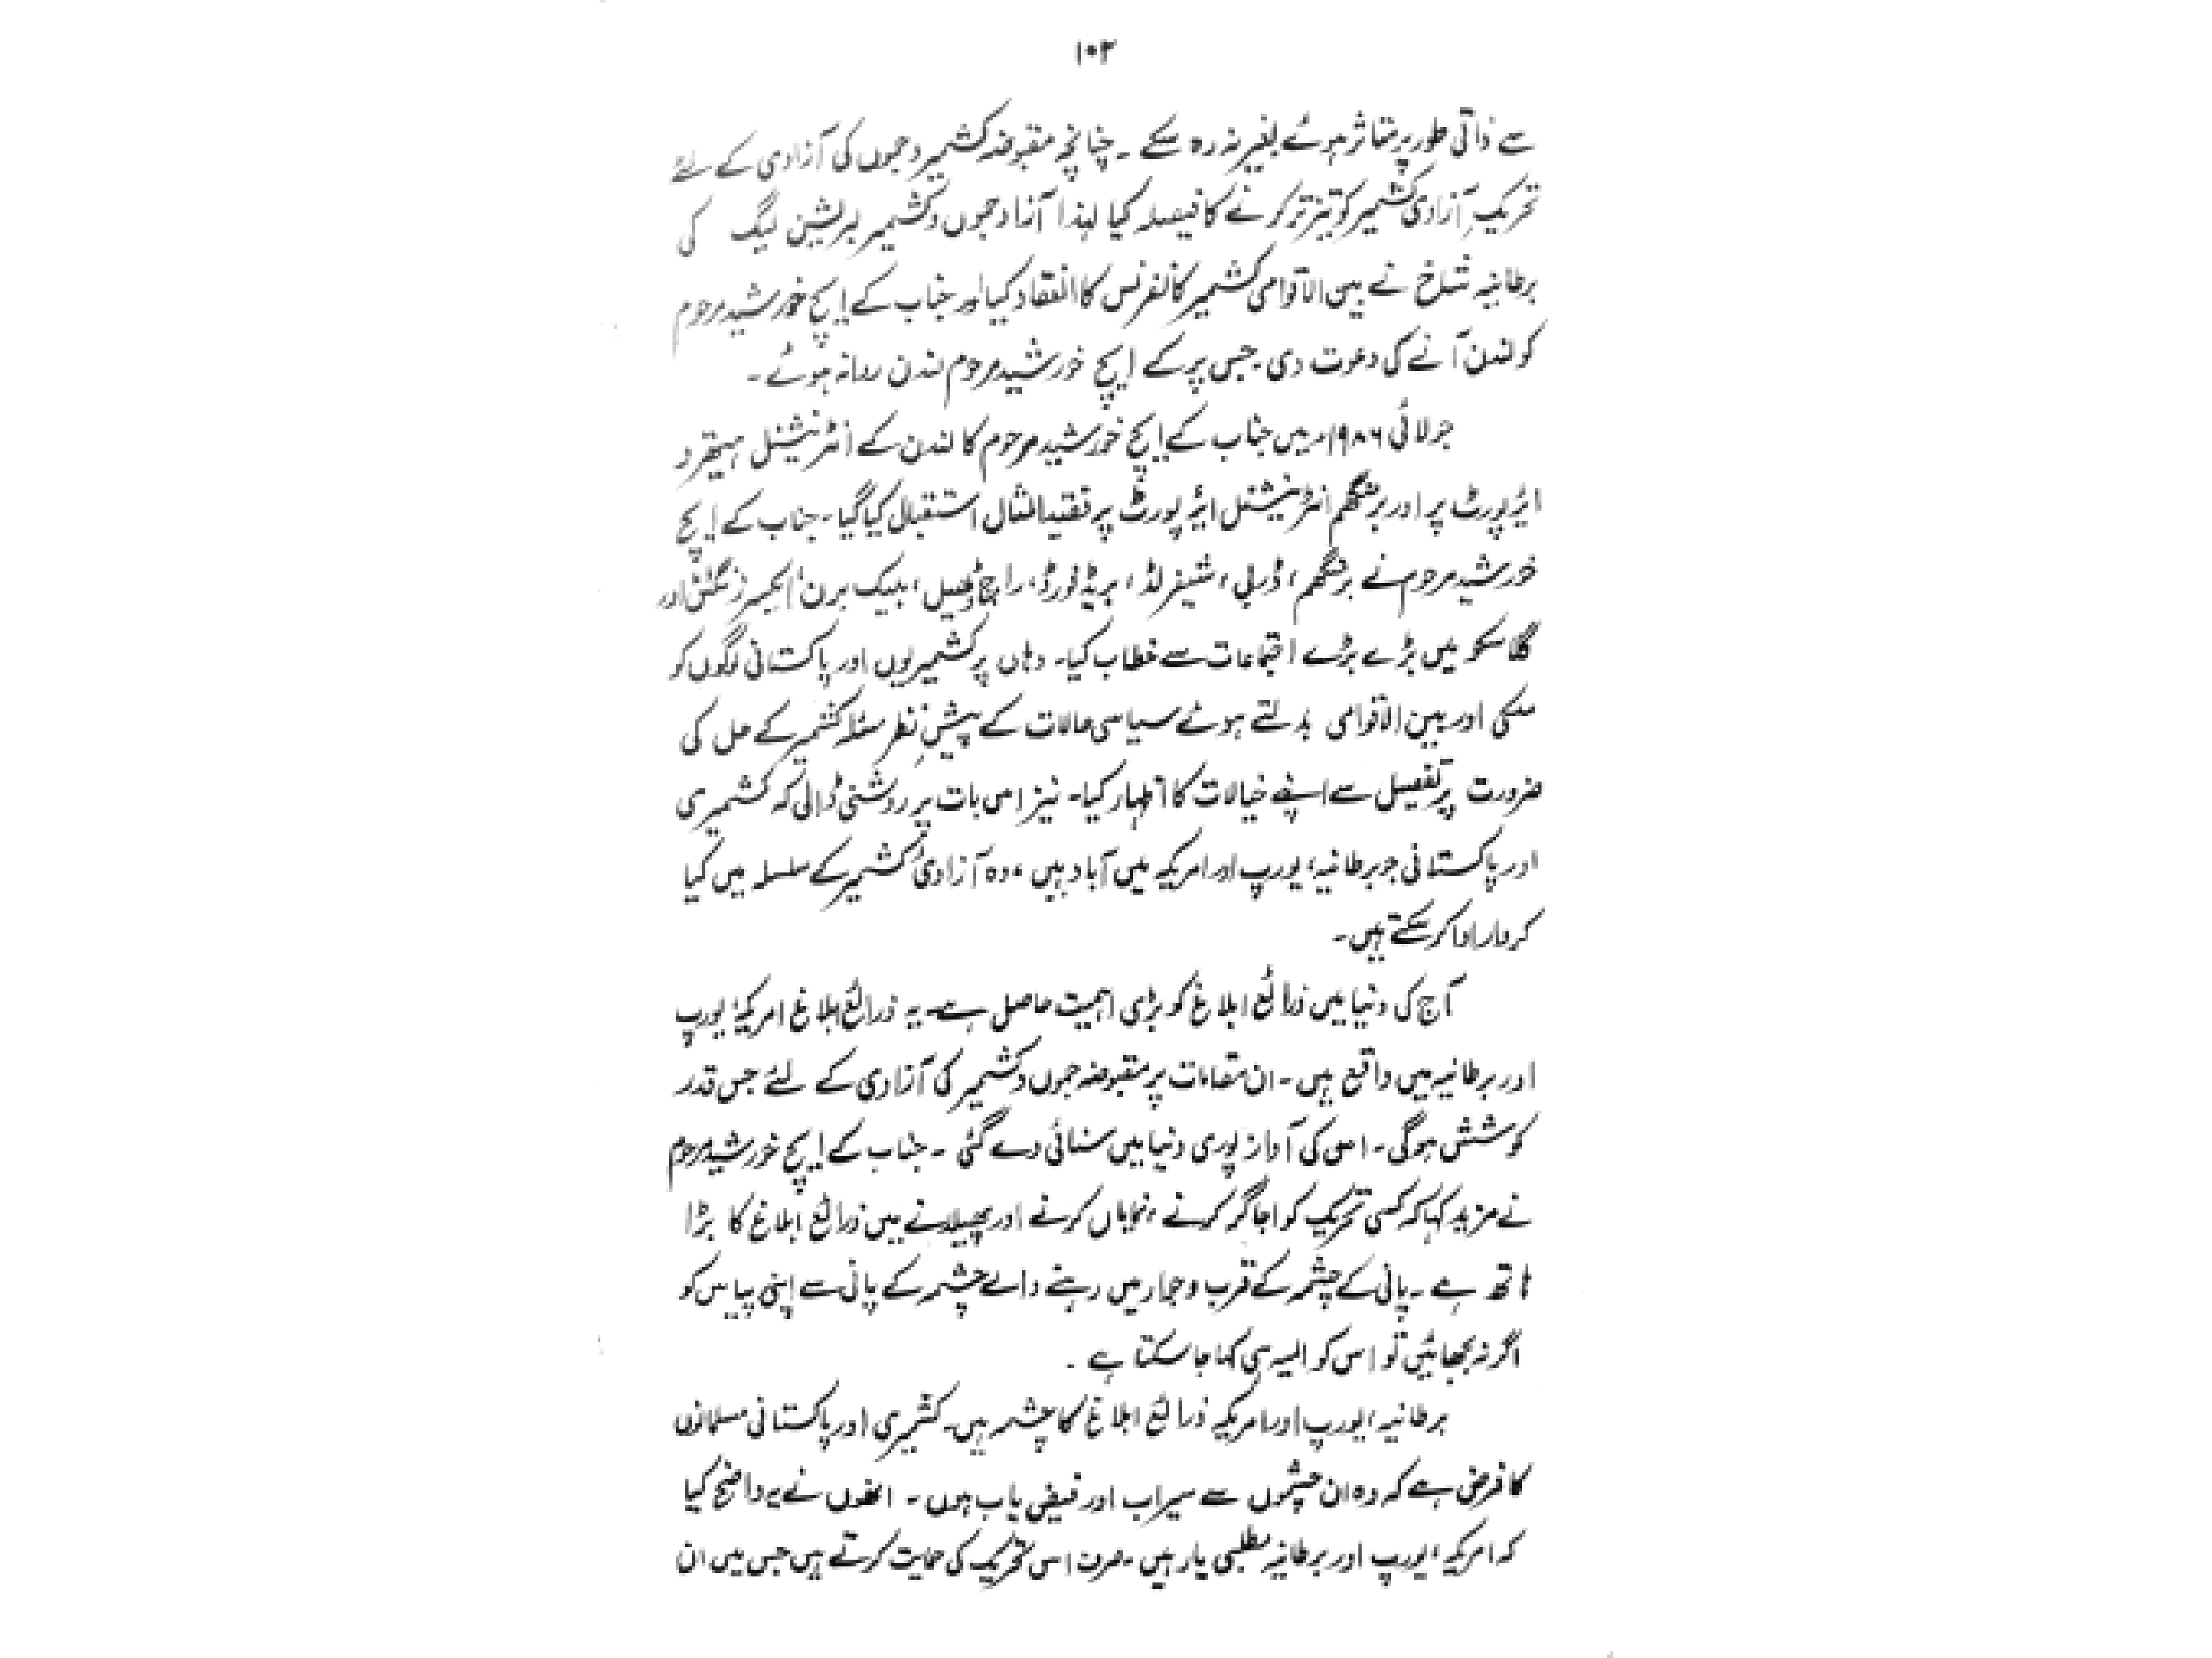 ۱۰۲
سے ذاتی طور پر متاثر ہوئے بغیر نہ رہ سکے ۔ چنانچہ مقبوضہ کشمیر و جموں کی آزادی کے لئے
تحریکِ آزادیٔ کشمیر کو تیز تر کرنے کا فیصلہ کیا لہذا آزاد جموں و کشمیر لبریشن لیگ کی
برطانیہ شاخ نے بین الاقوامی کشمیر کانفرنس کا انعقاد کیا اور جناب کے ایچ خورشید مرحوم
کو لندن آنے کی دعوت دی ۔ جس پر کے ایچ خورشید مرحوم لندن روانہ ہوئے ۔
جولائی ۱۹۸۶ء میں جناب کے ایچ خورشید مرحوم کا لندن کے انٹرنیشنل ہیتھرو
ائرپورٹ پر اور برمنگھم انٹرنیشنل ائرپورٹ پر فقید المثال استقبال کیا گیا ۔ جناب کے ایچ
خورشید مرحوم نے برمنگھم ، ڈربی ، شیفرلڈ ، بریڈفورڈ ، راچڈیل ، بلیک برن ، اور
گلاسکو میں بڑے بڑے اجتماعات سے خطاب کیا ۔ وہاں پر کشمیریوں اور پاکستانی لوگوں کو
ملکی اور بین الاقوامی بدلتے ہوئے سیاسی حالات کے پیشِ نظر مسئلہ کشمیر کے حل کی
ضرورت پر تفصیل سے اپنے خیالات کا اظہار کیا ۔ نیز اس بات پر روشنی ڈالی کہ کشمیری
اور پاکستانی جو برطانیہ ، یورپ اور امریکہ میں آباد ہیں ، وہ آزادیٔ کشمیر کے سلسلہ میں کیا
کردار ادا کر سکتے ہیں ۔
آج کی دنیا میں ذرائع ابلاغ کو بڑی اہمیت حاصل ہے ۔ یہ ذرائع ابلاغ امریکہ ، یورپ
اور برطانیہ میں واقع ہیں ۔ ان مقامات پر مقبوضہ جموں و کشمیر کی آزادی کے لئے جس قدر
کوشش ہوگی ۔ اس کی آواز پوری دنیا میں سنائی دے گئی ۔ جناب کے ایچ خورشید مرحوم
نے مزید کہا کہ کسی تحریک کو اجاگر کرنے ، نمایاں کرنے اور پھیلانے میں ذرائع ابلاغ کا بڑا
ہاتھ ہے ۔ پانی کے چشمہ کے قرب و جوار میں رہنے والے چشمہ کے پانی سے اپنی پیاس کو
اگر نہ بجھائیں تو اس کو المیہ ہی کہا جا سکتا ہے ۔
برطانیہ ، یورپ اور امریکہ ذرائع ابلاغ کا چشمہ ہیں ۔ کشمیری اور پاکستانی مسلمانوں
کا فرض ہے کہ وہ ان چشموں سے سیراب اور فیض یاب ہوں ۔ انھوں نے یہ واضح کیا
کہ امریکہ ، یورپ اور برطانیہ مطلبی یار ہیں ۔ صرف اسی تحریک کی حمایت کرتے ہیں جس میں ان